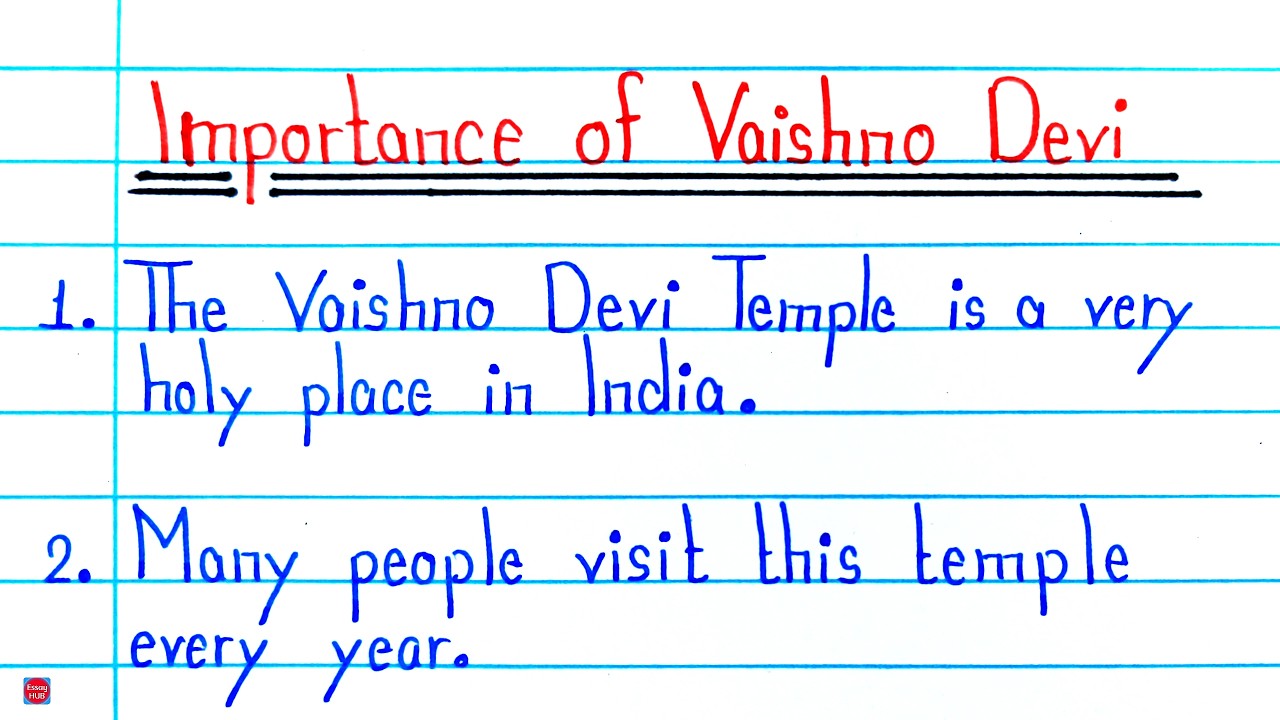 Importance of Vaishno Devi
1. The Vaishno Devi Temple is a very
holy place in India.
2. Many people visit this temple
every year.
Essay
HUB